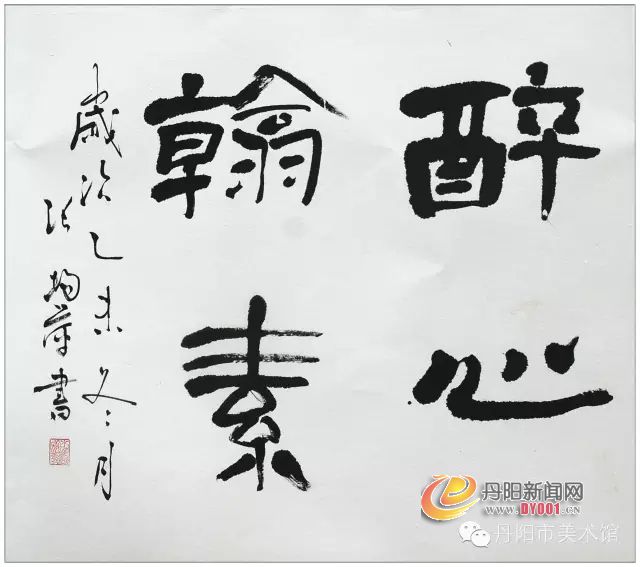 醉心
翰素
岁次乙未冬月
书
丹阳新闻网
WWW.DY001.CN
丹阳市美术馆